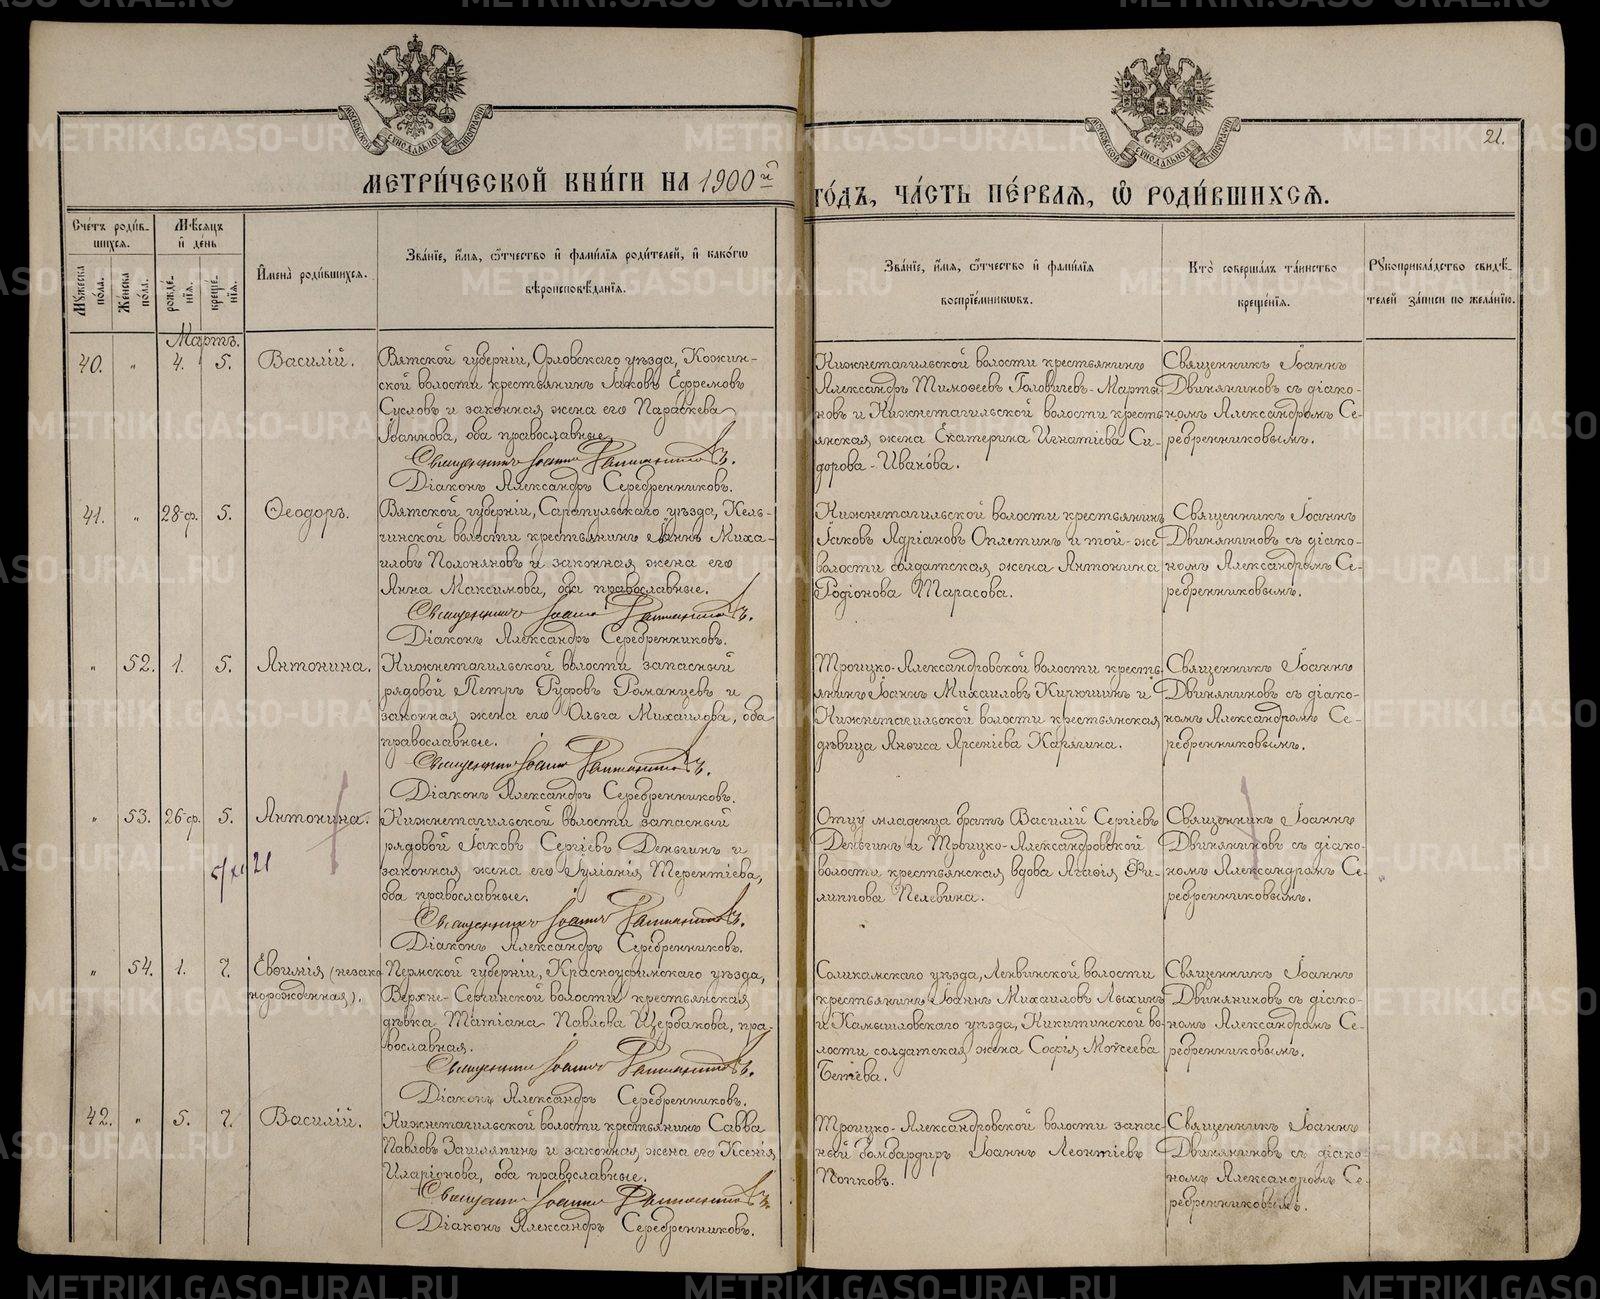 МЕТРИ́ЧЕСКОЙ КНИ́ГИ НА 1900й
ГО́ДЪ, ЧА́СТЬ ПЕ́РВАЯ, Ѽ РОДИ́ВШИХСЯ.
21.
Счетъ роди́вшихся.
Мѣсяцъ и҆ де́нь
Мꙋжеска по́ла.
Женска по́ла.
рожде́нїя.
креще́нїя.
И҆мена̀ роди́вшихся.
Зва́нїе, и҆́мя, ѻ҆́тчество и҆ фами́лїя роди́телей, и҆ како́гѡ
вѣроисповѣ́данїя.
Зва́нїе, и҆́мя, ѻ҆́тчество и҆ фами́лїя
воспрїе́мникѡвъ.
Кто̀ соверша́лъ та́инство
креще́нїя.
Рꙋкоприкла́дство свидѣ́-
телей за́писи по жела́нїю.
Мартъ.
40. " 4. 5. Василій.
Вятской губерніи, Орловскаго уѣзда, Кожин-
ской волости крестьянинъ Іаковъ Ефремовъ
Сусловъ и законная жена его Параскева
Іоаннова, оба православные.
Священникъ Іоаннъ
Діаконъ Александръ Серебренниковъ.
Нижнетагильской волости крестьянинъ
Александръ Тимоѳеевъ Головичевъ-Марты-
новъ и Нижнетагильской волости кресть-
янская жена Екатерина Игнатіева Си-
дорова-Иванова.
Священникъ Іоаннъ
Двиняниновъ съ діако-
номъ Александромъ Се-
ребренниковымъ.
41. " 28 ф. 5. Ѳеодоръ.
Вятской губерніи, Сарапульскаго уѣзда, Кель-
чинской волости крестьянинъ Іоаннъ Миха-
иловъ Полоняновъ и законная жена его
Анна Максимова, оба православные.
Священникъ Іоаннъ
Діаконъ Александръ Серебренниковъ.
Нижнетагильской волости крестьянинъ
Іаковъ Адріановъ Оплетинъ и той-же
волости солдатская жена Антонина
Родіонова Тарасова.
Священникъ Іоаннъ
Двиняниновъ съ діако-
номъ Александромъ Се-
ребренниковымъ.
" 52. 1. 5. Антонина.
Нижнетагильской волости запасный
рядовой Петръ Руфовъ Романцевъ и
законная жена его Ольга Михаилова, оба
православные.
Священникъ Іоаннъ
Діаконъ Александръ Серебренниковъ.
Троицко-Александровской волости кресть-
янинъ Іоаннъ Михаиловъ Кирюшинъ и
Нижнетагильской волости крестьянская
дѣвица Анѳиса Арсеніева Карягина.
Священникъ Іоаннъ
Двиняниновъ съ діако-
номъ Александромъ Се-
ребренниковымъ.
" 53. 26 ф. 5. Антонина.
21
Нижнетагильской волости запасный
рядовой Іаковъ Сергіевъ Деньгинъ и
законная жена его Іуліанія Терентіева,
оба православные.
Священникъ Іоаннъ
Діаконъ Александръ Серебренниковъ.
Отцу младенца братъ Василій Сергіевъ
Деньгинъ и Троицко-Александровской
волости крестьянская вдова Агафія Фи-
липпова Пелевина.
Священникъ Іоаннъ
Двиняниновъ съ діако-
номъ Александромъ Се-
ребренниковымъ.
" 54. 1. 7. Евѳимія (незако-
норожденная).
Пермской губерніи, Красноуфимскаго уѣзда,
Верхне-Сергинской волости крестьянская
дѣвка Татіана Павлова Щербакова, пра-
вославная.
Священникъ Іоаннъ
Діаконъ Александръ Серебренниковъ.
Соликамскаго уѣзда, Ленвинской волости
крестьянинъ Іоаннъ Михаиловъ Лыхинъ
и Камышловскаго уѣзда, Никитинской во-
лости солдатская жена Софія Моѵсеева
Бетева.
Священникъ Іоаннъ
Двиняниновъ съ діако-
номъ Александромъ Се-
ребренниковымъ.
42. " 5. 7. Василій.
Нижнетагильской волости крестьянинъ Савва
Павловъ Зашляпинъ и законная жена его Ксенія
Иларіонова, оба православные.
Священникъ Іоаннъ
Діаконъ Александръ Серебренниковъ.
Троицко-Александровской волости запас-
ный бомбардиръ Іоаннъ Леонтіевъ
Попковъ.
Священникъ Іоаннъ
Двиняниновъ съ діако-
номъ Александромъ Се-
ребренниковымъ.
METRIKI.GASO-URAL.RU